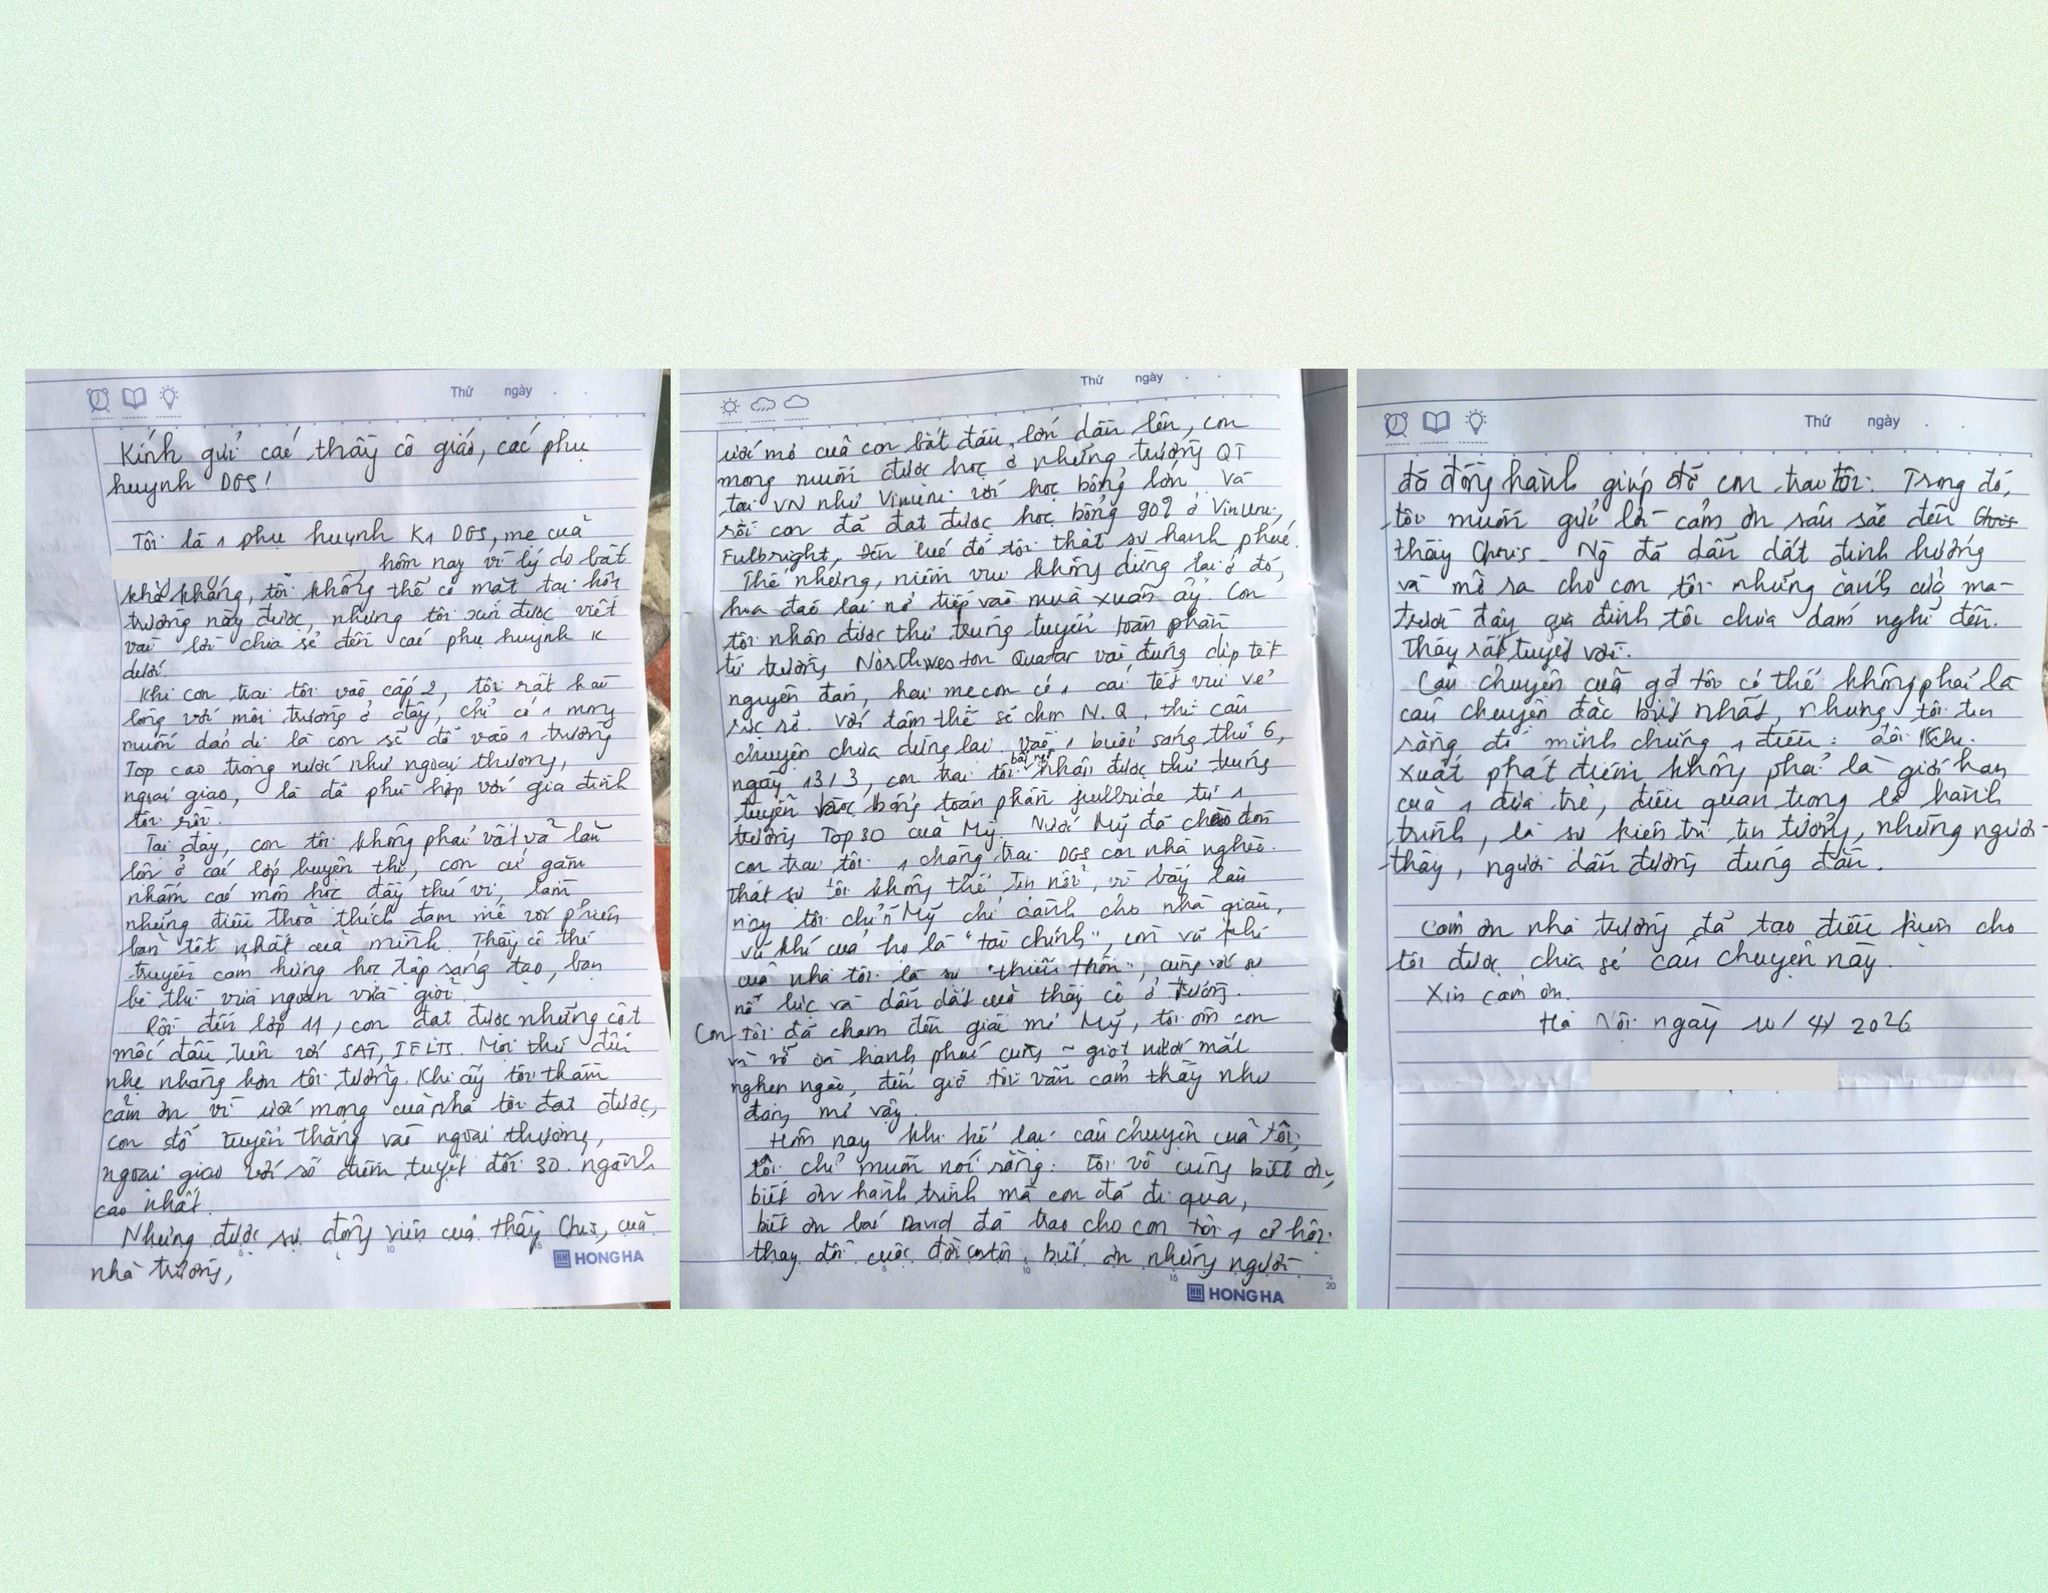 Thứ ngày
Kính gửi các thầy cô giáo, các phụ
huynh DGS!
Tôi là 1 phụ huynh K1 DGS, mẹ của
, hôm nay vì lý do bất
khả kháng, tôi không thể có mặt tại hội
trường này được, nhưng tôi xin được viết
vài lời chia sẻ đến các phụ huynh K
dưới.
Khi con trai tôi vào cấp 2, tôi rất hài
lòng với môi trường ở đây, chỉ có 1 mong
muốn đơn giản là con sẽ đỗ vào 1 trường
Top cao trong nước như ngoại thương,
ngoại giao, là đã phù hợp với gia đình
tôi rồi.
Tại đây, con tôi không phải vất vả lăn
lộn ở các lớp luyện thi, con cứ gặm
nhấm các môn học đầy thú vị, làm
những điều thoả thích đam mê với phiên
bản tốt nhất của mình. Thầy cô thì
truyền cảm hứng học tập sáng tạo, bạn
bè thì vừa ngoan vừa giỏi.
Rồi đến lớp 11, con đạt được những cột
mốc đầu tiên với SAT, IELTS. Mọi thứ đến
nhẹ nhàng hơn tôi tưởng. Khi ấy tôi thầm
cảm ơn vì ước mong của nhà tôi đạt được,
con sẽ tuyển thẳng vào ngoại thương,
ngoại giao với số điểm tuyệt đối 30. ngành
cao nhất.
Nhưng được sự động viên của thầy Chris, của
nhà trường,
HONG HA
Thứ ngày
ước mơ của con bắt đầu lớn dần lên, con
mong muốn được học ở những trường QT
tại VN như Vinuni với học bổng lớn. Và
rồi con đã đạt được học bổng 90% ở VinUni,
Fulbright, Đến lúc đó tôi thật sự hạnh phúc.
Thế nhưng, niềm vui không dừng lại ở đó,
hoa đào lại nở tiếp vào mùa xuân ấy. Con
tôi nhận được thư trúng tuyển toàn phần
từ trường Northweston Quatar vào đúng dịp tết
nguyên đán, hai mẹ con có 1 cái tết vui vẻ
rực rỡ. Với tâm thế sẽ chọn N.Q, thì câu
chuyện chưa dừng lại. vào 1 buổi sáng thứ 6,
ngày 13/3, con trai tôi bất ngờ nhận được thư trúng
tuyển học bổng toàn phần fullride từ 1
trường Top 30 của Mỹ. Nước Mỹ đã chào đón
con trai tôi, 1 chàng trai DGS con nhà nghèo.
Thật sự tôi không thể tin nổi, vì bấy lâu
nay tôi nghĩ Mỹ chỉ dành cho nhà giàu,
vũ khí của họ là "tài chính", còn vũ khí
của nhà tôi là sự "thiếu thốn", cùng với sự
nỗ lực và dẫn dắt của thầy cô ở trường.
Con tôi đã chạm đến giấc mơ Mỹ, tôi ôm con
vỡ oà hạnh phúc cùng ~ giọt nước mắt
nghẹn ngào, đến giờ tôi vẫn cảm thấy như
đang mơ vậy.
Hôm nay khi kể lại câu chuyện của tôi,
tôi chỉ muốn nói rằng: Tôi vô cùng biết ơn,
biết ơn hành trình mà con đã đi qua,
biết ơn bác David đã trao cho con tôi 1 cơ hội
thay đổi cuộc đời con tôi, biết ơn những người
5 10 15 20
HONG HA
Thứ ngày
đã đồng hành giúp đỡ con trai tôi. Trong đó,
tôi muốn gửi lời cảm ơn sâu sắc đến Chris
thầy Chris - Ng đã dẫn dắt định hướng
và mở ra cho con tôi những cánh cửa mà
trước đây gia đình tôi chưa dám nghĩ đến.
Thầy rất tuyệt vời.
Câu chuyện của gđ tôi có thể không phải là
câu chuyện đặc biệt nhất, nhưng tôi tin
rằng để minh chứng 1 điều: đôi khi
xuất phát điểm không phải là giới hạn
của 1 đứa trẻ, điều quan trọng là hành
trình, là sự kiên trì tin tưởng, những người
thầy, người dẫn đường đúng đắn.
Cảm ơn nhà trường đã tạo điều kiện cho
tôi được chia sẻ câu chuyện này.
Xin cảm ơn.
Hà Nội ngày 10/4/2026